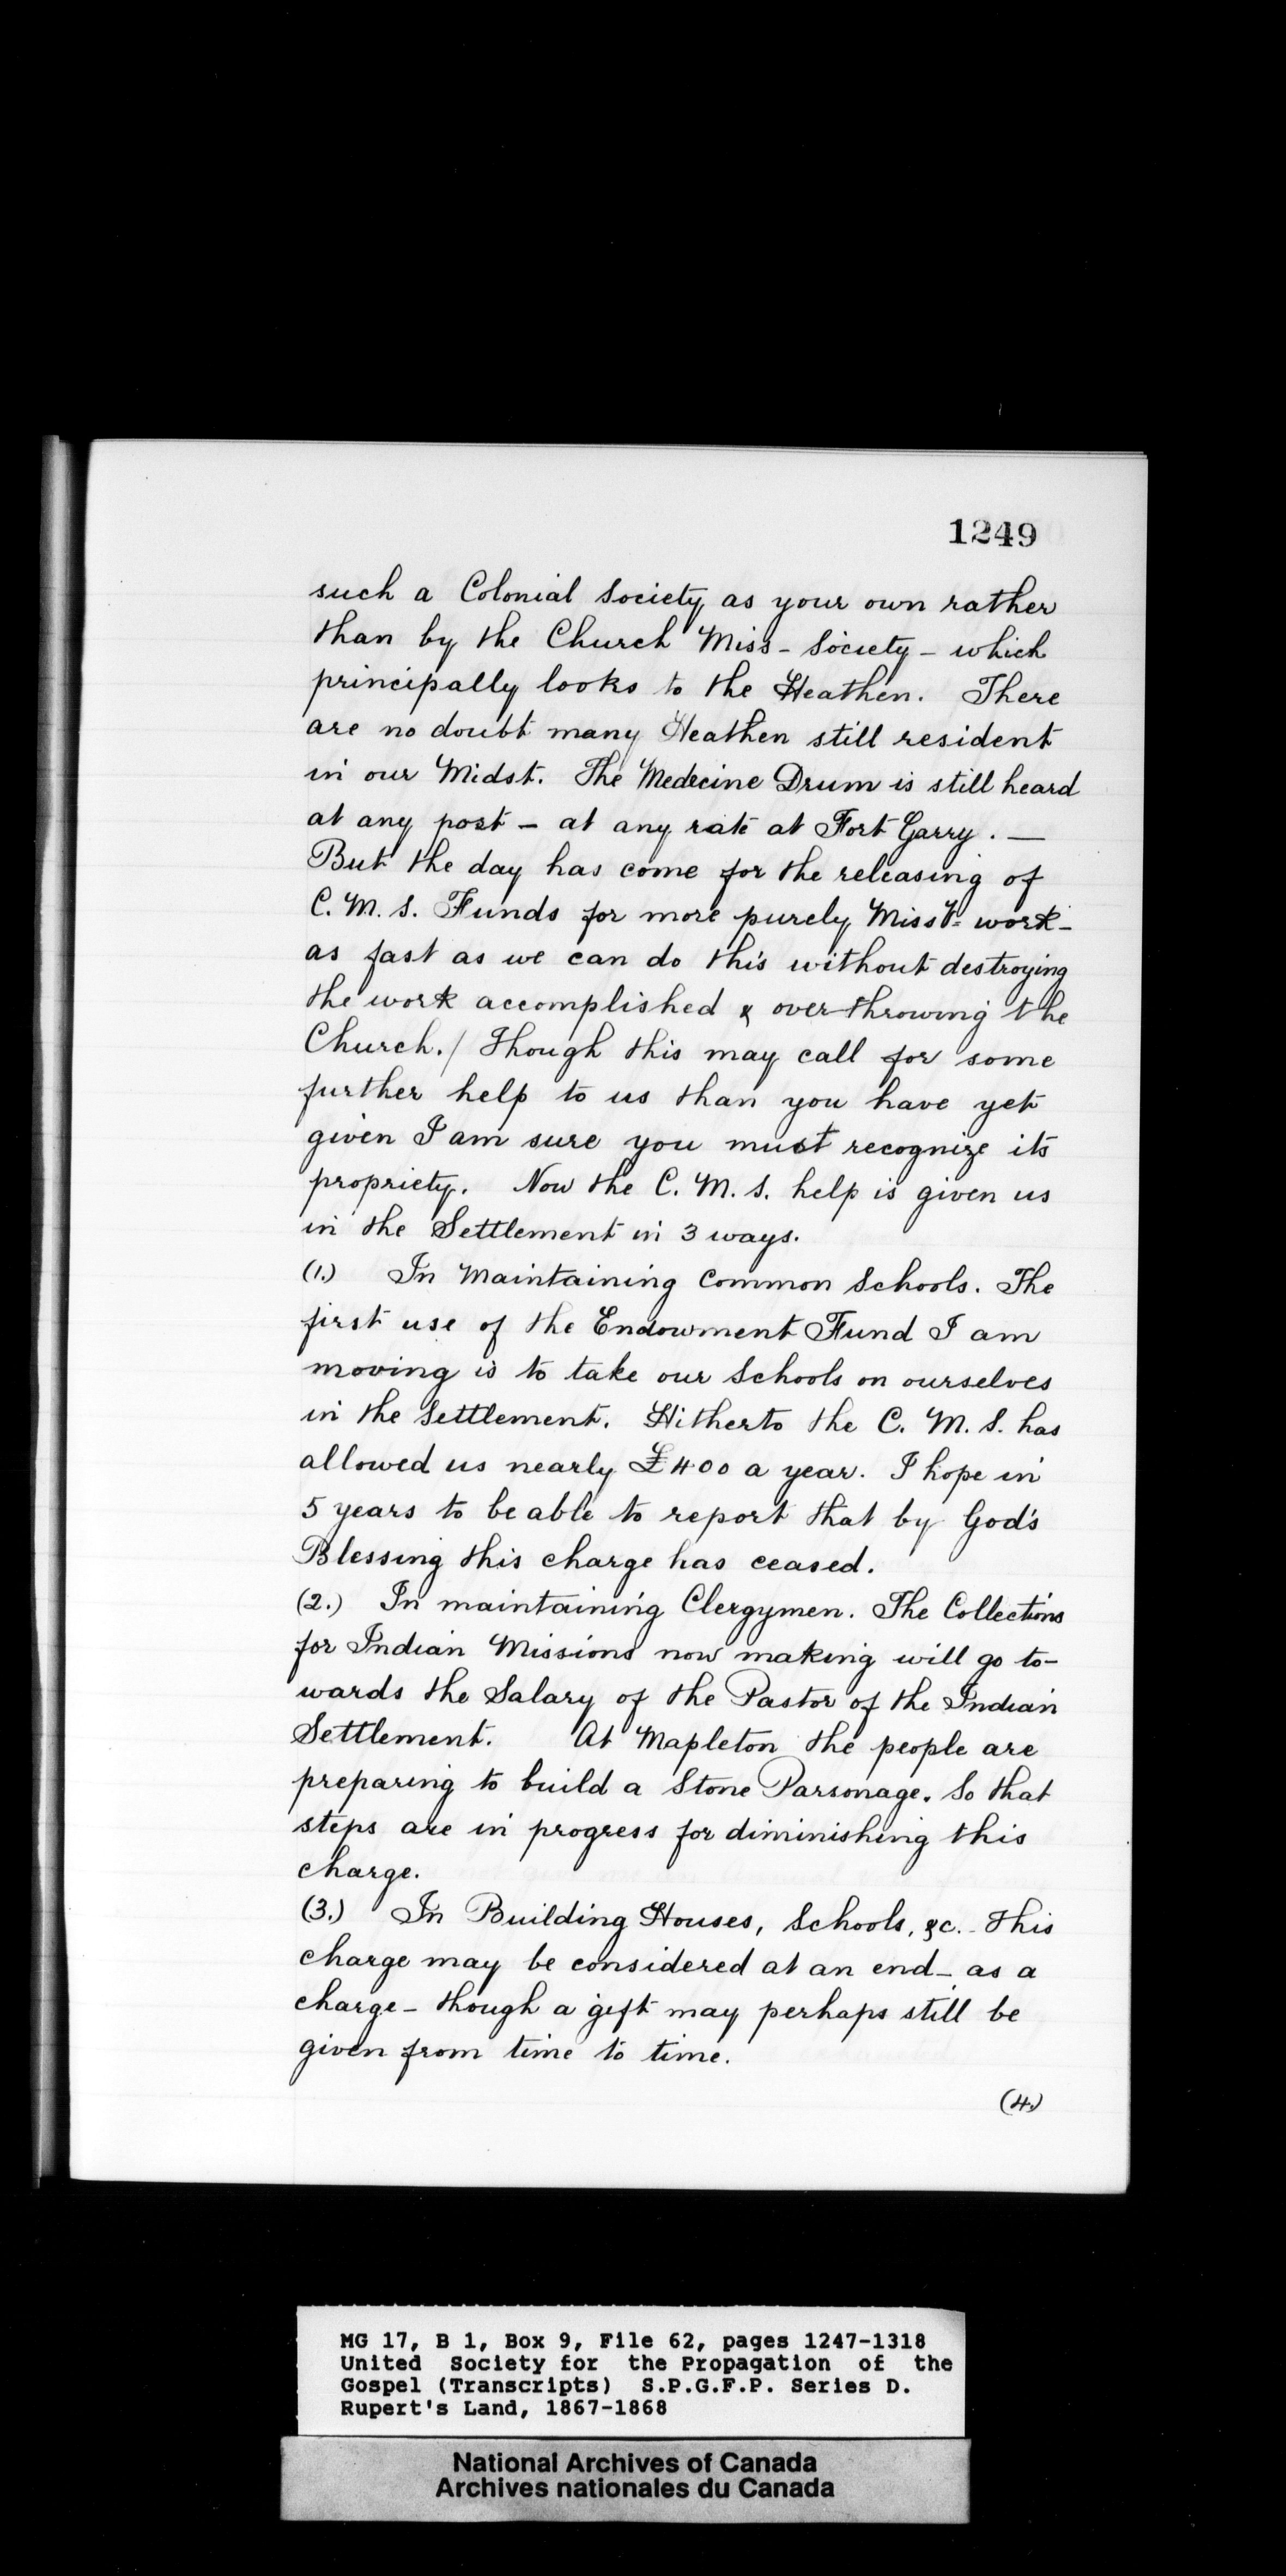 1249
such a Colonial Society as your own rather
than by the Church Miss - Society - which
principally looks to the Heathen. There
are no doubt many Heathen still resident
in our Midst. The Medecine Drum is still heard
at any post - at any rate at Fort Garry . —
But the day has come for the releasing of
C. M. S. Funds for more purely Missy= work -
as fast as we can do this without destroying
the work accomplished & over-throwing the
Church./ Though this may call for some
further help to us than you have yet
given I am sure you must recognize its
propriety. Now the C. M. S. help is given us
in the Settlement in 3 ways.
(1.) In Maintaining Common Schools. The
first use of the Endowment Fund I am
moving is to take our Schools on ourselves
in the Settlement. Hitherto the C. M. S. has
allowed us nearly £400 a year. I hope in
5 years to be able to report that by God's
Blessing this charge has ceased.
(2.) In maintaining Clergymen. The Collections
for Indian Missions now making will go to-
wards the Salary of the Pastor of the Indian
Settlement. At Mapleton the people are
preparing to build a Stone Parsonage. So that
steps are in progress for diminishing this
charge.
(3.) In Building Houses, Schools, &c. - This
charge may be considered at an end - as a
charge - though a gift may perhaps still be
given from time to time.
(4.)
MG 17, B 1, Box 9, File 62, pages 1247-1318
United Society for the Propagation of the
Gospel (Transcripts) S.P.G.F.P. Series D.
Rupert's Land, 1867-1868
National Archives of Canada
Archives nationales du Canada